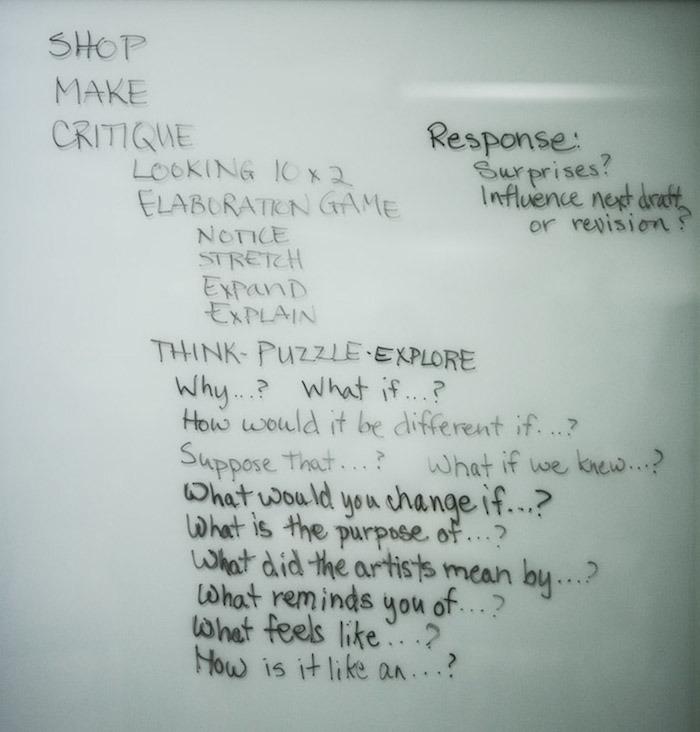 SHOP
MAKE
CRITIQUE
LOOKING 10 x 2
ELABORATION GAME
NOTICE
STRETCH
EXPAND
EXPLAIN
THINK - PUZZLE · EXPLORE
Why...? What if...?
How would it be different if....?
Suppose that....? What if we knew...?
What would you change if...?
What is the purpose of....?
What did the artists mean by....?
What reminds you of....?
What feels like....?
How is it like an....?
Response:
Surprises?
Influence next draft
or revision?